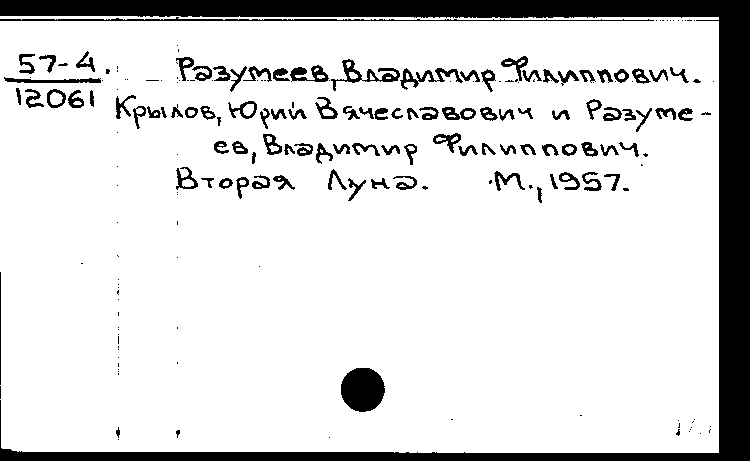 57-4. Разумеев, Владимир Филиппович.
12061 Крылов, Юрий Вячеславович и Разуме-
ев, Владимир Филиппович.
Вторая Луна. М., 1957.